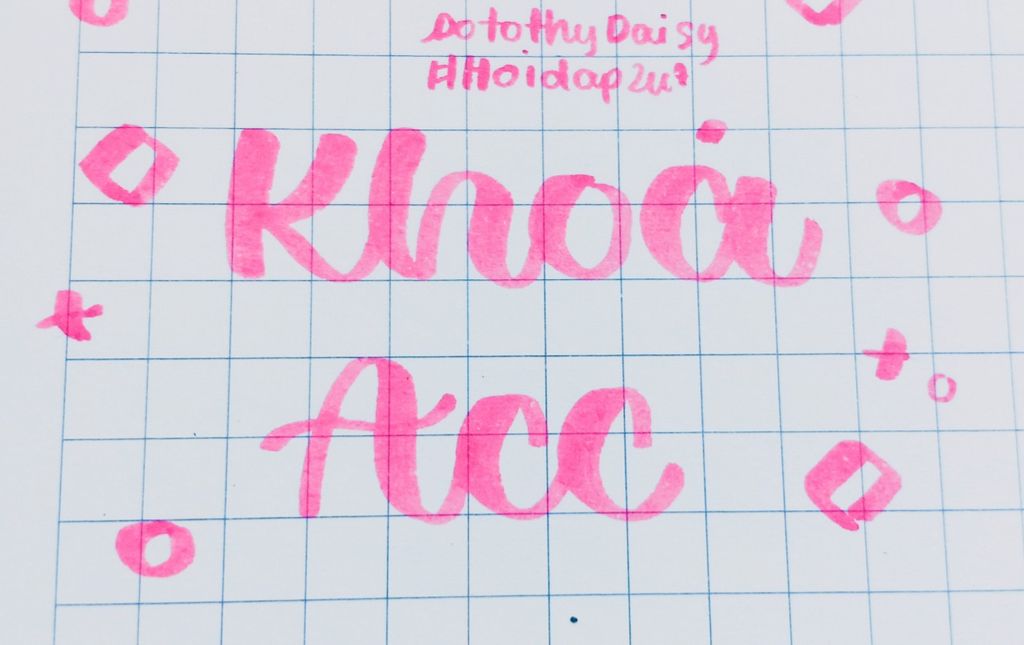 Dotothy Daisy
#Hoidap247
Khoá
Acc